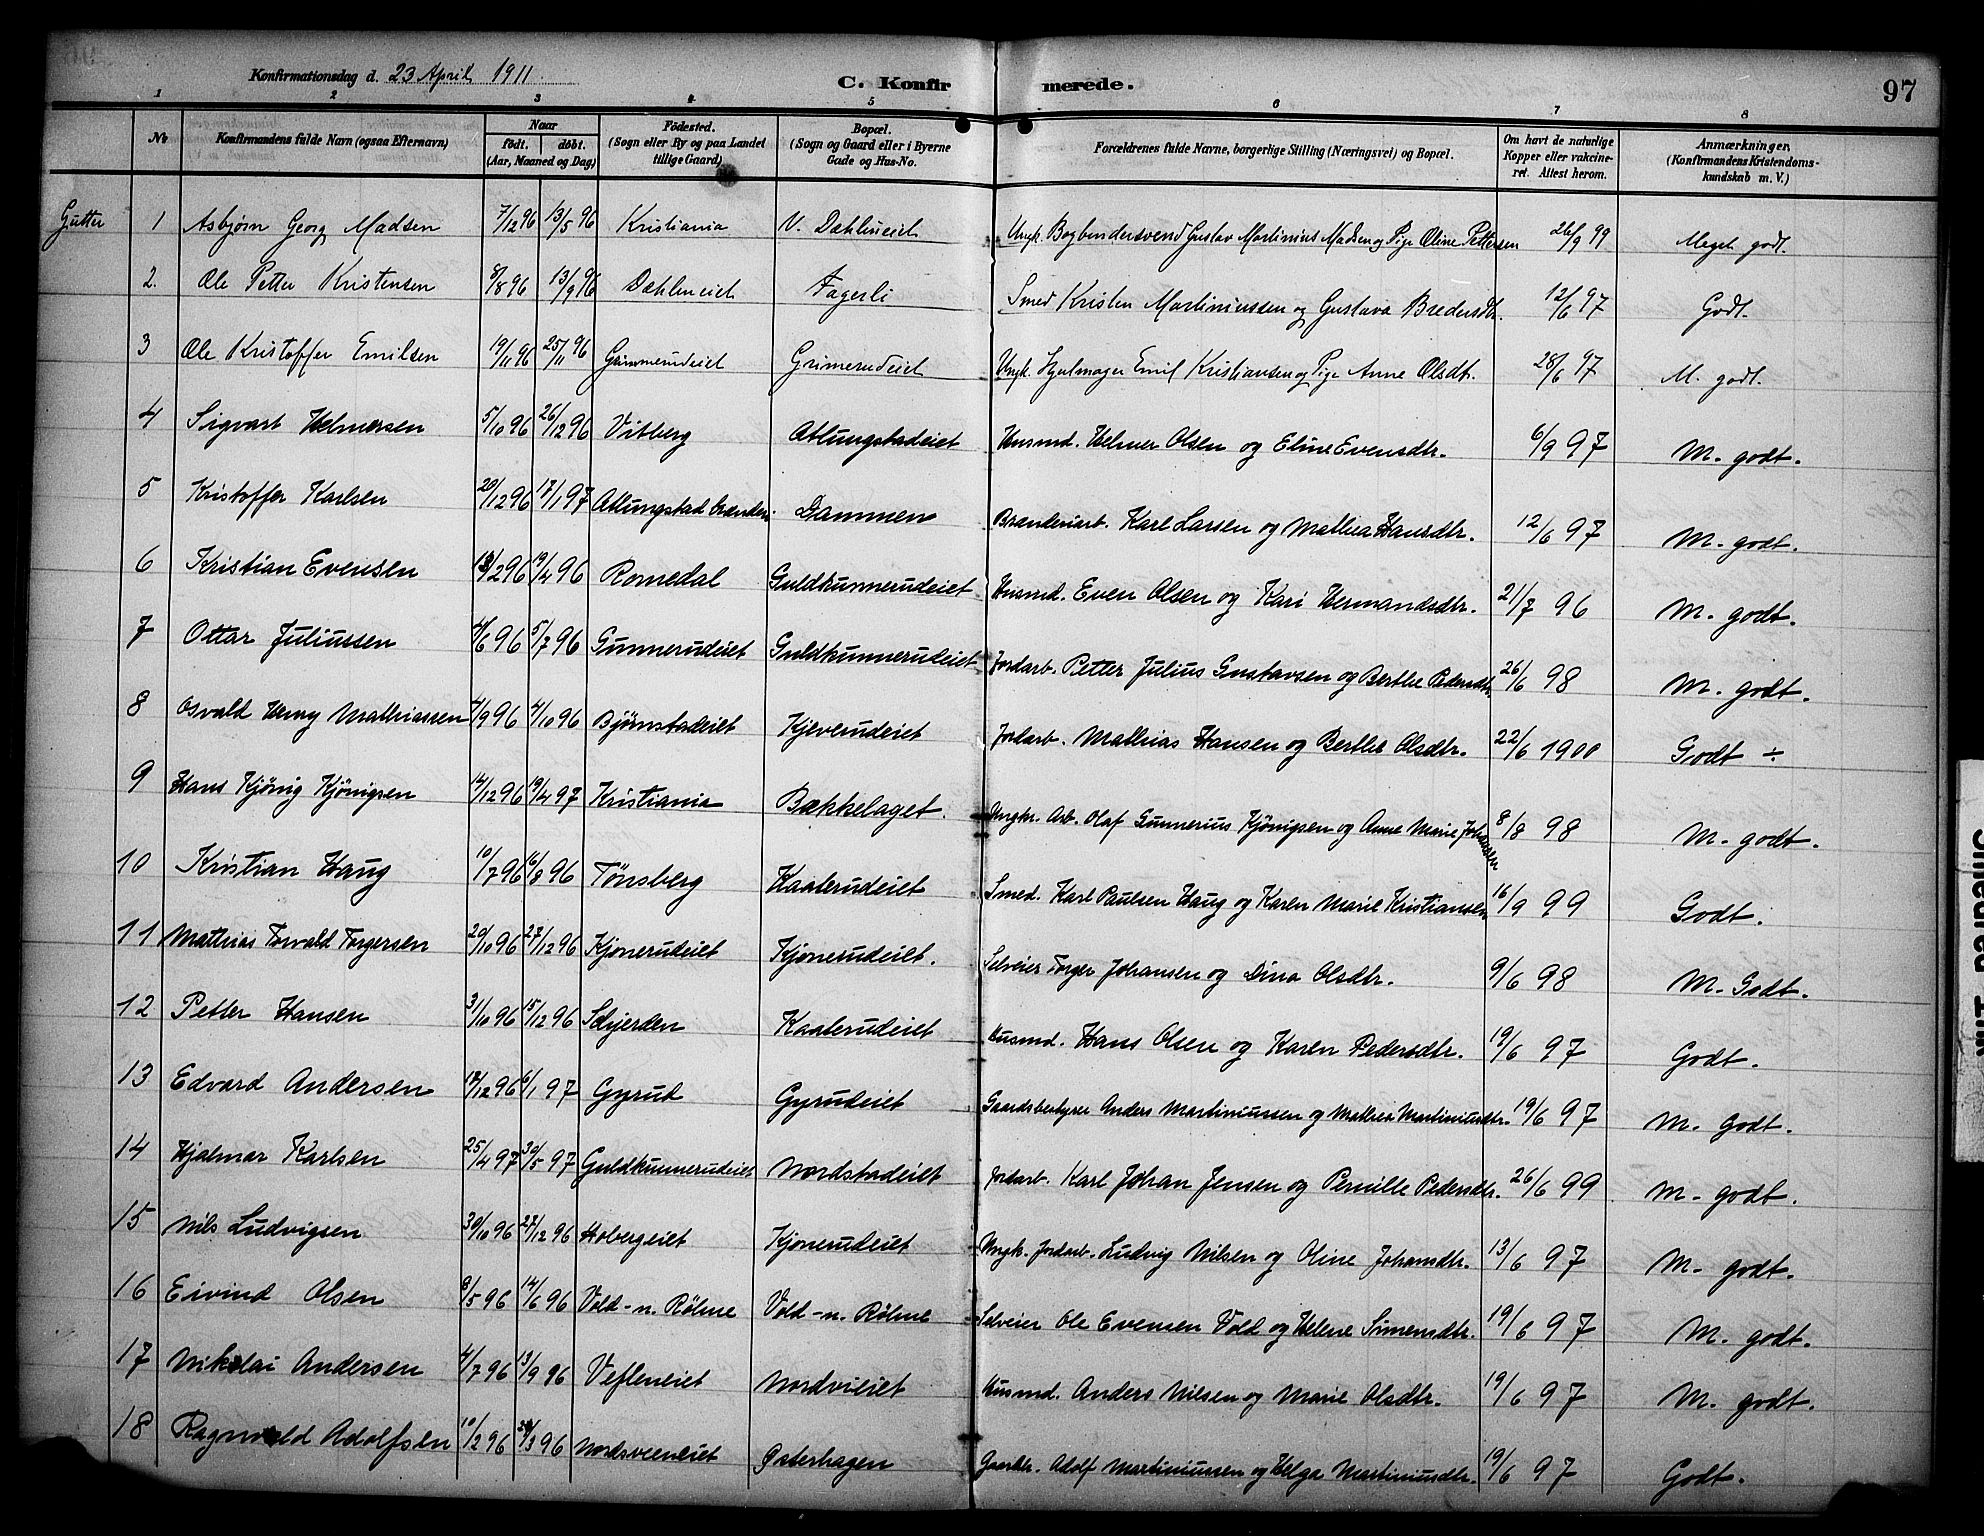 Konfirmationsdag d. 23 April 1911
C. Konfirmerede.
97
1 2 3 4 5 6 7 8
No
Konfirmandens fulde Navn (ogsaa Efternavn)
Naar
födt. döbt.
(Aar, Maaned og Dag)
Födested.
(Sogn eller By og paa Landet tillige Gaard)
Bopæl.
(Sogn og Gaard eller i Byerne Gade og Hus-No.
Forældrenes fulde Navne, borgerlige Stilling (Næringsvei) og Bopæl.
Om havt de naturlige Kopper eller vakcineret. Attest herom.
Anmærkninger.
(Konfirmandens Kristendomskundskab m. V.)
Gutter
1 Asbjørn Georg Madsen 7/12 96 13/5 96 Kristiania V. Dæhlineiet Ungk. Bogbindersvend Gustav Martinius Madsen og Pige Oline Pettersen 26/9 99 Meget godt.
2. Ole Petter Kristensen 8/8 96 13/9 96 Dæhlineiet Fagerli Smed Kristen Martiniussen og Gustava Bredersdtr. 12/6 97 Godt.
3 Ole Kristoffer Emilsen 19/11 96 25/11 96 Grimerudeiet Grimerudeiet Ungk. Hjulmager Emil Kristiansen og Pige Anne Olsdt. 28/6 97 M. godt.
4 Sigvart Helmersen 5/10 96 26/12 96 Vitberg Atlungstadeiet Husmd. Helmer Olsen og Eline Evensdtr. 6/9 97 M. godt.
5 Kristoffer Karlsen 20/12 96 17/1 97 Atlungstad brænderi Dammen Brænderiarb. Karl Larsen og Mathea Hansdtr. 12/6 97 M. godt.
6 Kristian Evensen 18/2 96 19/4 96 Romedal Guldkunnerudeiet Husmd. Even Olsen og Kari Hermandsdtr. 21/7 96 M. godt.
7 Ottar Juliussen 4/6 96 5/7 96 Gunnerudeiet Guldkunnerudeiet Jordarb. Petter Julius Gustavsen og Berthe Pedersdtr. 26/6 98 M. godt.
8 Osvald Henry Mathiassen 4/9 96 4/10 96 Bjørnstadeiet Kjeverudeiet Jordarb. Mathias Hansen og Berthe Olsdtr. 22/6 1900 Godt ÷
9 Hans Kjönig Kjönigsen 14/12 96 19/4 97 Kristiania Bækkelaget. Ungkr. Arb. Olaf Gunnerius Kjönigsen og Anne Marie Johansen 8/8 98 M. godt.
10 Kristian Haug 10/7 96 16/8 96 Tönsberg Kaaterudeiet Smed. Karl Paulsen Haug og Karen Marie Kristiansen 16/9 99 Godt.
11 Mathias Torvald Torgersen 20/10 96 27/12 96 Kjonerudeiet Kjonerudeiet. Selveier Torger Johansen og Dina Olsdtr. 9/6 98 M. Godt.
12 Petter Hansen 31/10 96 15/12 96 Skjerden Kaaterudeiet Husmd. Hans Olsen og Karen Pedersdtr. 19/6 97 Godt.
13 Edvard Andersen 17/12 96 6/1 97 Gyrud Gyrudeiet Gaardsbestyrer Anders Martiniussen og Mathea Martiniusdtr. 19/6 97 M. godt.
14 Hjalmar Karlsen 25/4 97 30/5 97 Guldkunnerudeiet Nordstadeiet Jordarb. Karl Johan Jensen og Pernille Pedersdtr. 26/6 99 M. godt.
15 Nils Ludvigsen 30/10 96 27/12 96 Hobergeiet Kjonerudeiet Ungk. Jordarb. Ludvig Nilsen og Oline Johansdtr. 13/6 97 M. godt.
16 Eivind Olsen 8/5 96 14/6 96 Vold-n. Röhne Vold-n. Röhne Selveier Ole Evensen Vold og Helene Simensdtr. 19/6 97 M. godt.
17 Nikolai Andersen 4/7 96 13/9 96 Vefleneiet Nordvieiet Husmd. Anders Nilsen og Marie Olsdtr. 19/6 97 M. godt.
18 Ragnvald Adolfsen 10/2 96 /3 96 Nordsveeneiet Østerhagen Gaardbr. Adolf Martiniussen og Helga Martiniusdtr. 19/6 97 Godt.